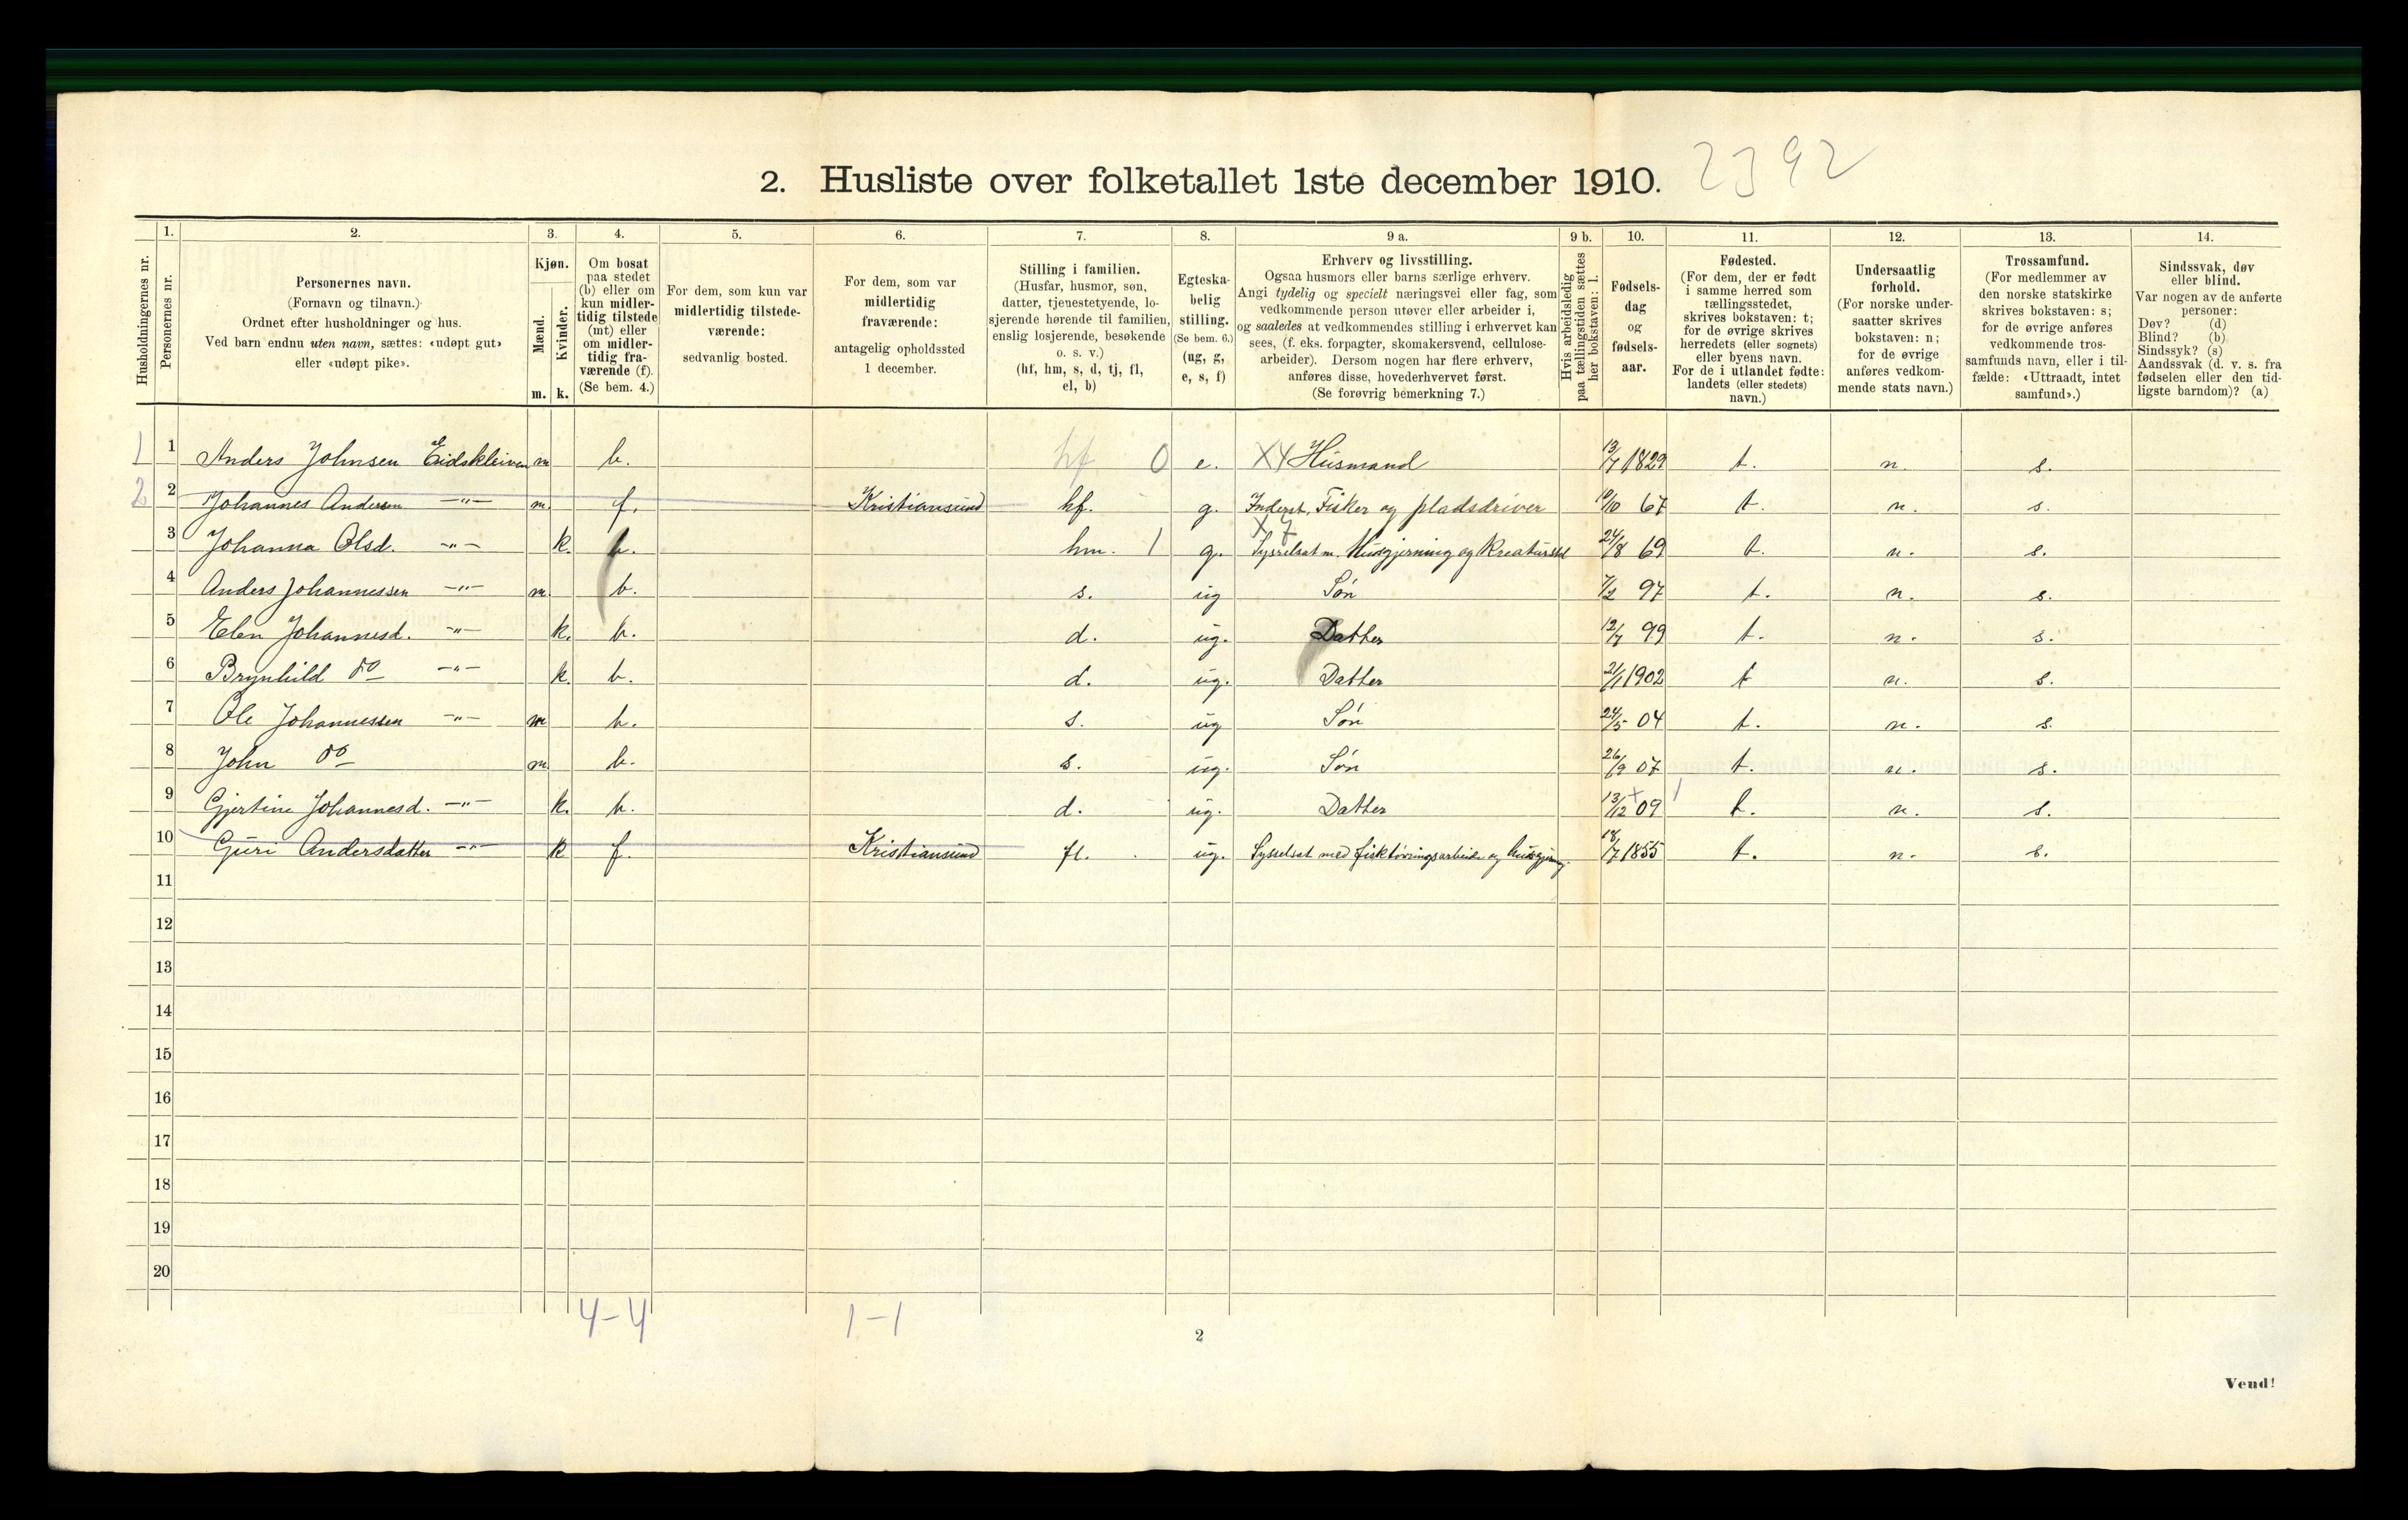 2. Husliste over folketallet 1ste december 1910. 2392
1. 2. 3. 4. 5. 6. 7. 8. 9 a. 9 b. 10. 11. 12. 13. 14.
Husholdningernes nr.
Personernes nr.
Personernes navn.
(Fornavn og tilnavn.)
Ordnet efter husholdninger og hus.
Ved barn endnu uten navn, sættes: «udøpt gut»
eller «udøpt pike».
Kjøn.
Mænd.
Kvinder.
m. k.
Om bosat
paa stedet
(b) eller om
kun midler-
tidig tilstede
(mt) eller
om midler-
tidig fra-
værende (f).
(Se bem. 4.)
For dem, som kun var
midlertidig tilstede-
værende:
sedvanlig bosted.
For dem, som var
midlertidig
fraværende:
antagelig opholdssted
1 december.
Stilling i familien.
(Husfar, husmor, søn,
datter, tjenestetyende, lo-
sjerende hørende til familien,
enslig losjerende, besøkende
o. s. v.)
(hf, hm, s, d, tj, fl,
el, b)
Egteska-
belig
stilling.
(Se bem. 6.)
(ug, g,
e, s, f)
Erhverv og livsstilling.
Ogsaa husmors eller barns særlige erhverv.
Angi tydelig og specielt næringsvei eller fag, som
vedkommende person utøver eller arbeider i,
og saaledes at vedkommendes stilling i erhvervet kan
sees, (f. eks. forpagter, skomakersvend, cellulose-
arbeider). Dersom nogen har flere erhverv,
anføres disse, hovederhvervet først.
(Se forøvrig bemerkning 7.)
Hvis arbeidsledig
paa tællingstiden sættes
her bokstaven: l.
Fødsels-
dag
og
fødsels-
aar.
Fødested.
(For dem, der er født
i samme herred som
tællingsstedet,
skrives bokstaven: t;
for de øvrige skrives
herredets (eller sognets)
eller byens navn.
For de i utlandet fødte:
landets (eller stedets)
navn.)
Undersaatlig
forhold.
(For norske under-
saatter skrives
bokstaven: n;
for de øvrige
anføres vedkom-
mende stats navn.)
Trossamfund.
(For medlemmer av
den norske statskirke
skrives bokstaven: s;
for de øvrige anføres
vedkommende tros-
samfunds navn, eller i til-
fælde: «Uttraadt, intet
samfund».)
Sindssvak, døv
eller blind.
Var nogen av de anførte
personer:
Døv? (d)
Blind? (b)
Sindssyk? (s)
Aandssvak (d. v. s. fra
fødselen eller den tid-
ligste barndom)? (a)
1 1 Anders Johnsen Eidskleiven m b. hf 0 e. X4 Husmand 13/7 1829 t. n. s.
2 2 Johannes Andersen —"— m. f. Kristiansund hf. g. Inderst, Fisker og pladsdriver 10/10 67 t. n. s.
3 Johanna Olsd. —"— k. b. hm. 1 g. Sysselsat m. Husgjerning og Kreaturstel 24/8 69 t. n. s.
4 Anders Johannessen —"— m. b. s. ug Søn 7/2 97 t. n. s.
5 Elen Johannesd. —"— k. b. d. ug. Datter 12/7 99 t. n. s.
6 Brynhild do —"— k. b. d. ug. Datter 21/1 1902 t n. s.
7 Ole Johannessen —"— m b. s. ug Søn 24/5 04 t. n. s.
8 John do m b. s. ug. Søn 26/9 07 t. n. s.
9 Gjertine Johannesd. —"— k. b. d. ug. Datter 13/12 09 t. n. s.
10 Guri Andersdatter —"— k f. Kristiansund fl. ug. Sysselsat med fisktørringsarbeide og husgjerning. 18/7 1855 t. n. s.
11
12
13
14
15
16
17
18
19
20
4-4 1-1
2
Vend!